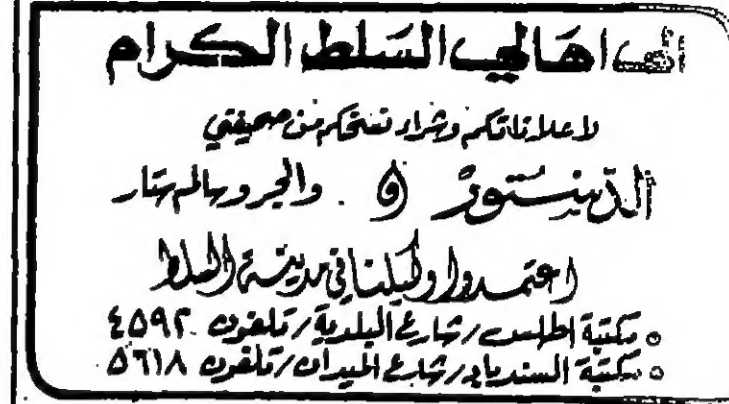 الى اهالي السلط الكرام
لاعلاناتكم وشراء نسختكم من صحيفتي
الدستور و . والجروسالم ستار
اعتمدوا وكيلنا في مدينة السلط
○ مكتبة اطلس / شارع البلدية / تلفون ٤٥٩٢
○ مكتبة السندباد / شارع الميدان / تلفون ٥٦١٨